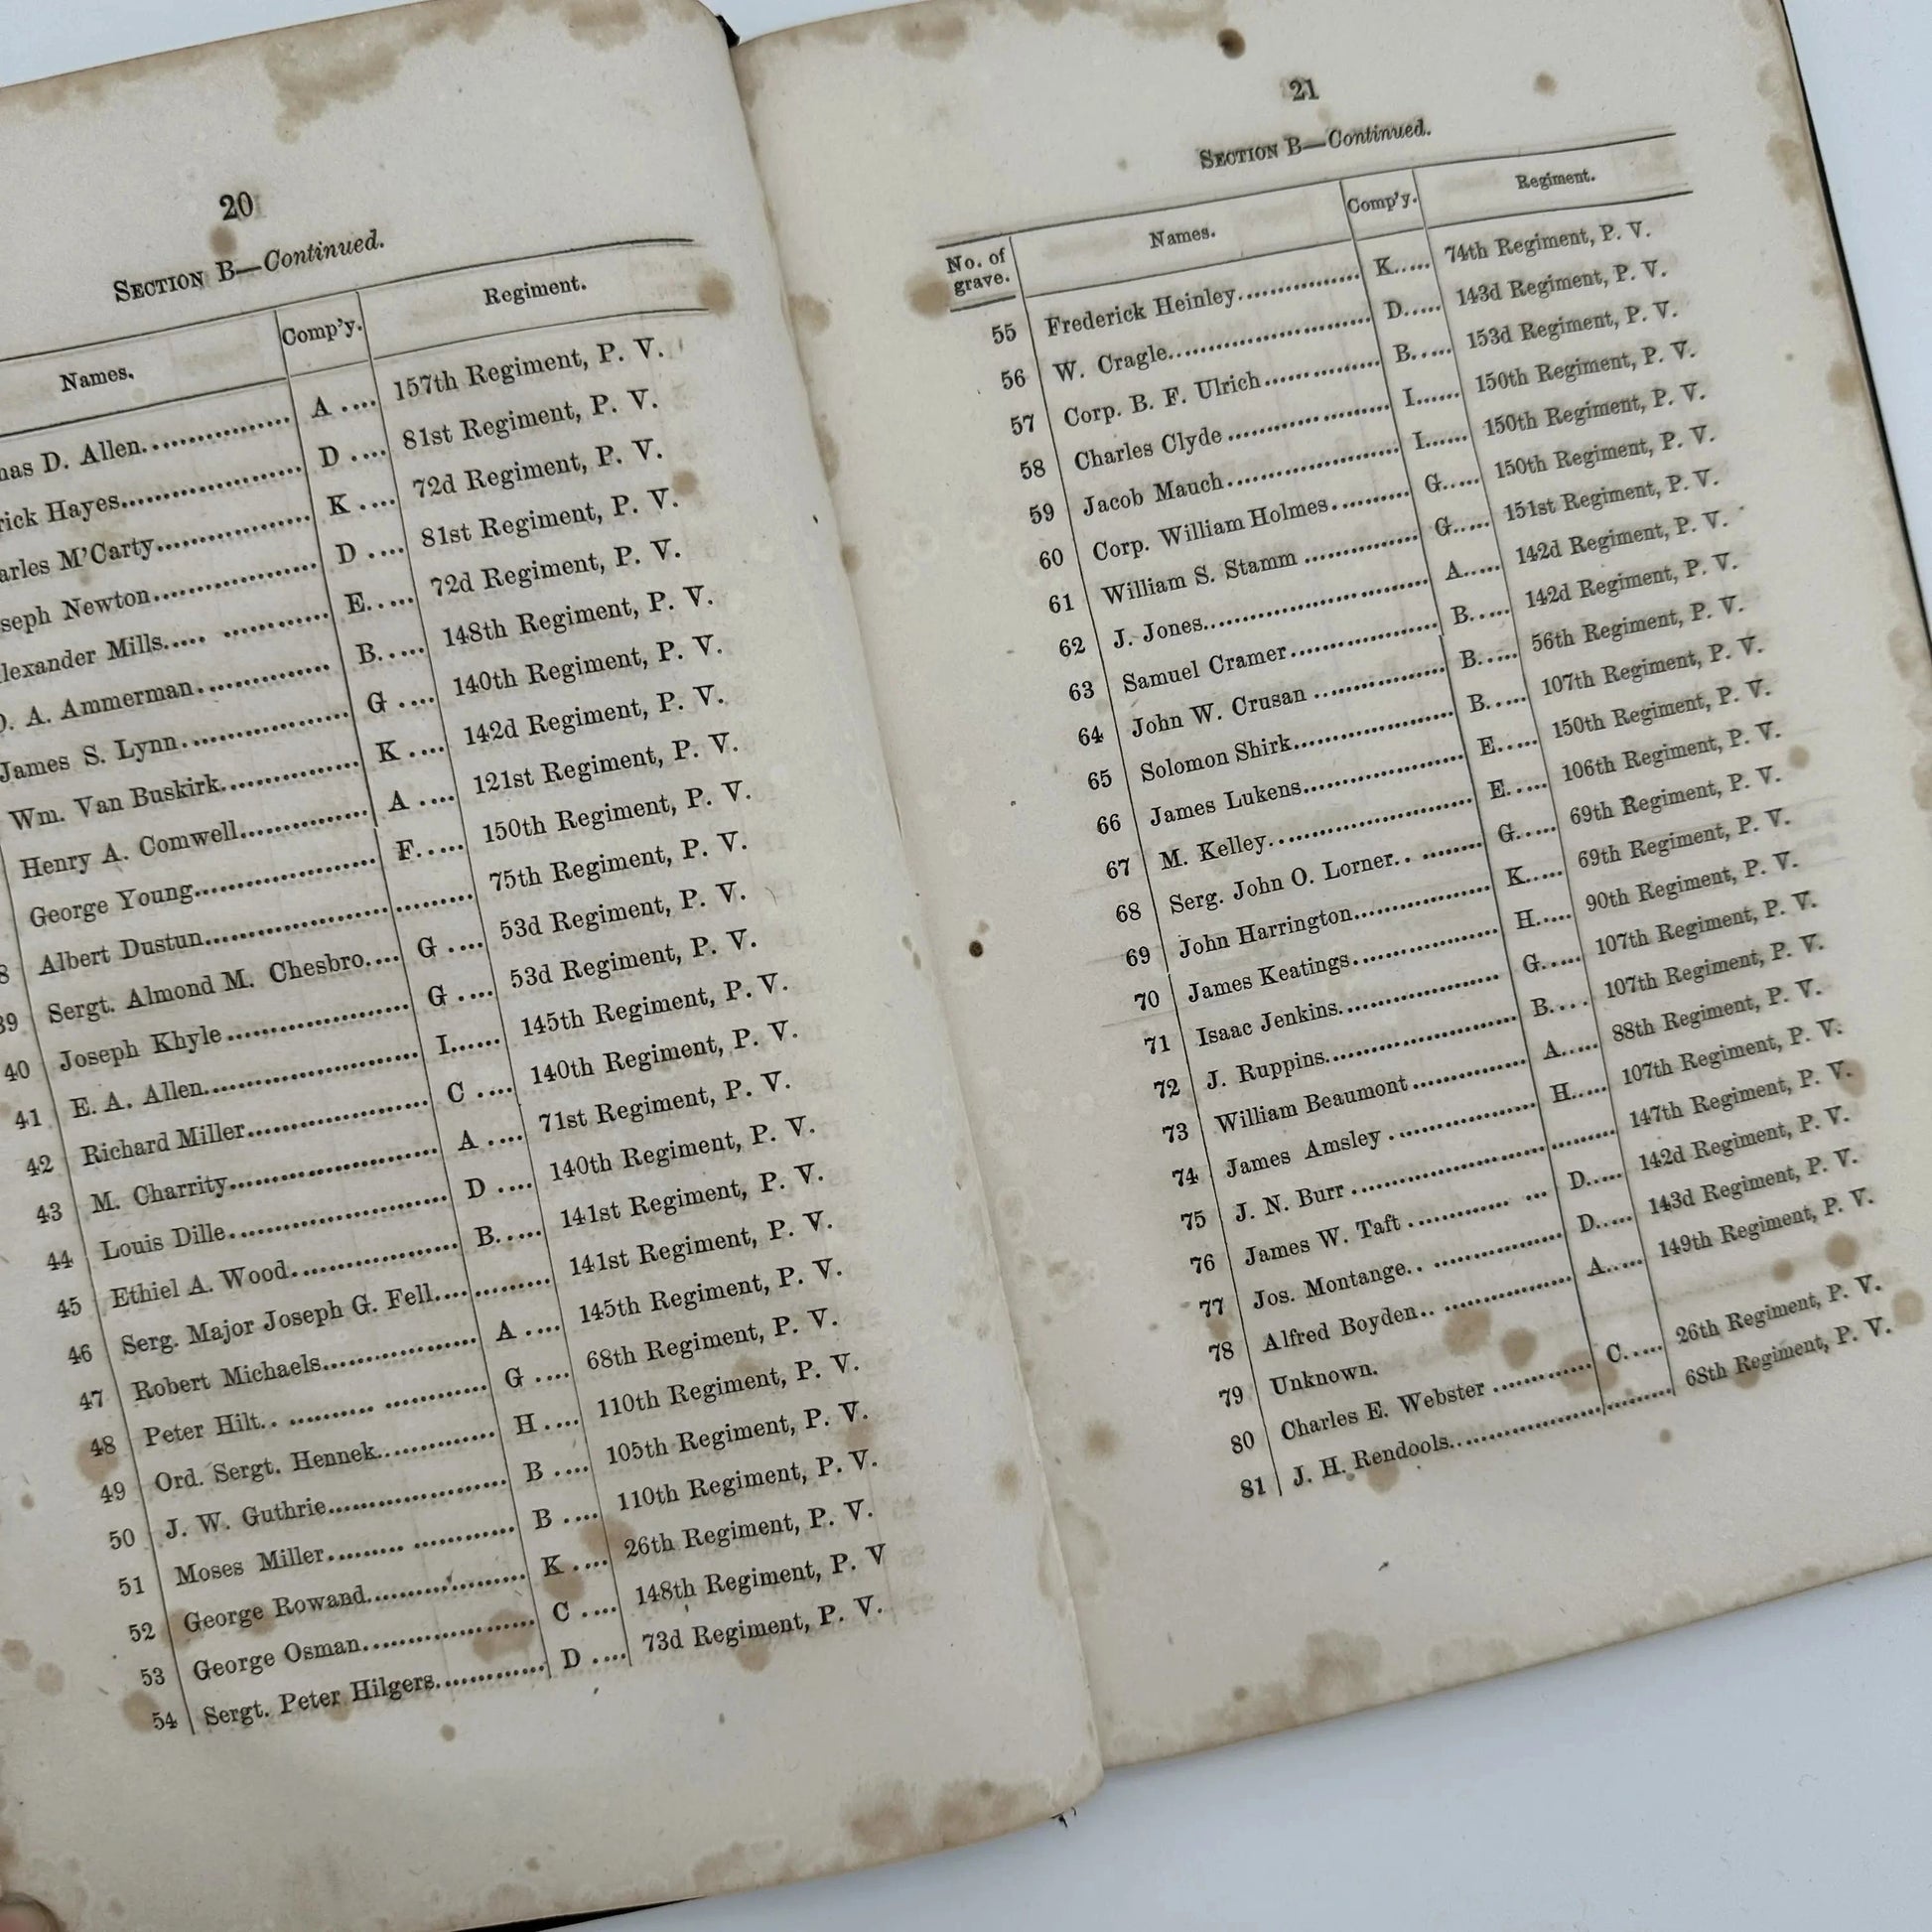 20
SECTION B—Continued.
Names. Comp'y. Regiment.
D. Allen. A 157th Regiment, P. V.
Hayes D 81st Regiment, P. V.
M'Carty K 72d Regiment, P. V.
Newton D 81st Regiment, P. V.
Mills E 72d Regiment, P. V.
A. Ammerman B 148th Regiment, P. V.
James S. Lynn G 140th Regiment, P. V.
Wm. Van Buskirk K 142d Regiment, P. V.
Henry A. Comwell A 121st Regiment, P. V.
George Young F 150th Regiment, P. V.
Albert Dustun 75th Regiment, P. V.
Sergt. Almond M. Chesbro G 53d Regiment, P. V.
40 Joseph Khyle G 53d Regiment, P. V.
41 E. A. Allen I 145th Regiment, P. V.
42 Richard Miller C 140th Regiment, P. V.
43 M. Charrity A 71st Regiment, P. V.
44 Louis Dille D 140th Regiment, P. V.
45 Ethiel A. Wood B 141st Regiment, P. V.
46 Serg. Major Joseph G. Fell 141st Regiment, P. V.
47 Robert Michaels A 145th Regiment, P. V.
48 Peter Hilt G 68th Regiment, P. V.
49 Ord. Sergt. Hennek H 110th Regiment, P. V.
50 J. W. Guthrie B 105th Regiment, P. V.
51 Moses Miller B 110th Regiment, P. V.
52 George Rowand K 26th Regiment, P. V.
53 George Osman C 148th Regiment, P. V
54 Sergt. Peter Hilgers D 73d Regiment, P. V.
21
SECTION B—Continued.
No. of grave. Names. Comp'y. Regiment.
55 Frederick Heinley K 74th Regiment, P. V.
56 W. Cragle D 143d Regiment, P. V.
57 Corp. B. F. Ulrich B 153d Regiment, P. V.
58 Charles Clyde I 150th Regiment, P. V.
59 Jacob Mauch I 150th Regiment, P. V.
60 Corp. William Holmes G 150th Regiment, P. V.
61 William S. Stamm G 151st Regiment, P. V.
62 J. Jones A 142d Regiment, P. V.
63 Samuel Cramer B 142d Regiment, P. V.
64 John W. Crusan B 56th Regiment, P. V.
65 Solomon Shirk B 107th Regiment, P. V.
66 James Lukens E 150th Regiment, P. V.
67 M. Kelley E 106th Regiment, P. V.
68 Serg. John O. Lorner G 69th Regiment, P. V.
69 John Harrington K 69th Regiment, P. V.
70 James Keatings H 90th Regiment, P. V.
71 Isaac Jenkins G 107th Regiment, P. V.
72 J. Ruppins B 107th Regiment, P. V.
73 William Beaumont A 88th Regiment, P. V.
74 James Amsley H 107th Regiment, P. V.
75 J. N. Burr 147th Regiment, P. V.
76 James W. Taft D 142d Regiment, P. V.
77 Jos. Montange D 143d Regiment, P. V.
78 Alfred Boyden A 149th Regiment, P. V.
79 Unknown.
80 Charles E. Webster C 26th Regiment, P. V.
81 J. H. Rendools 68th Regiment, P. V.